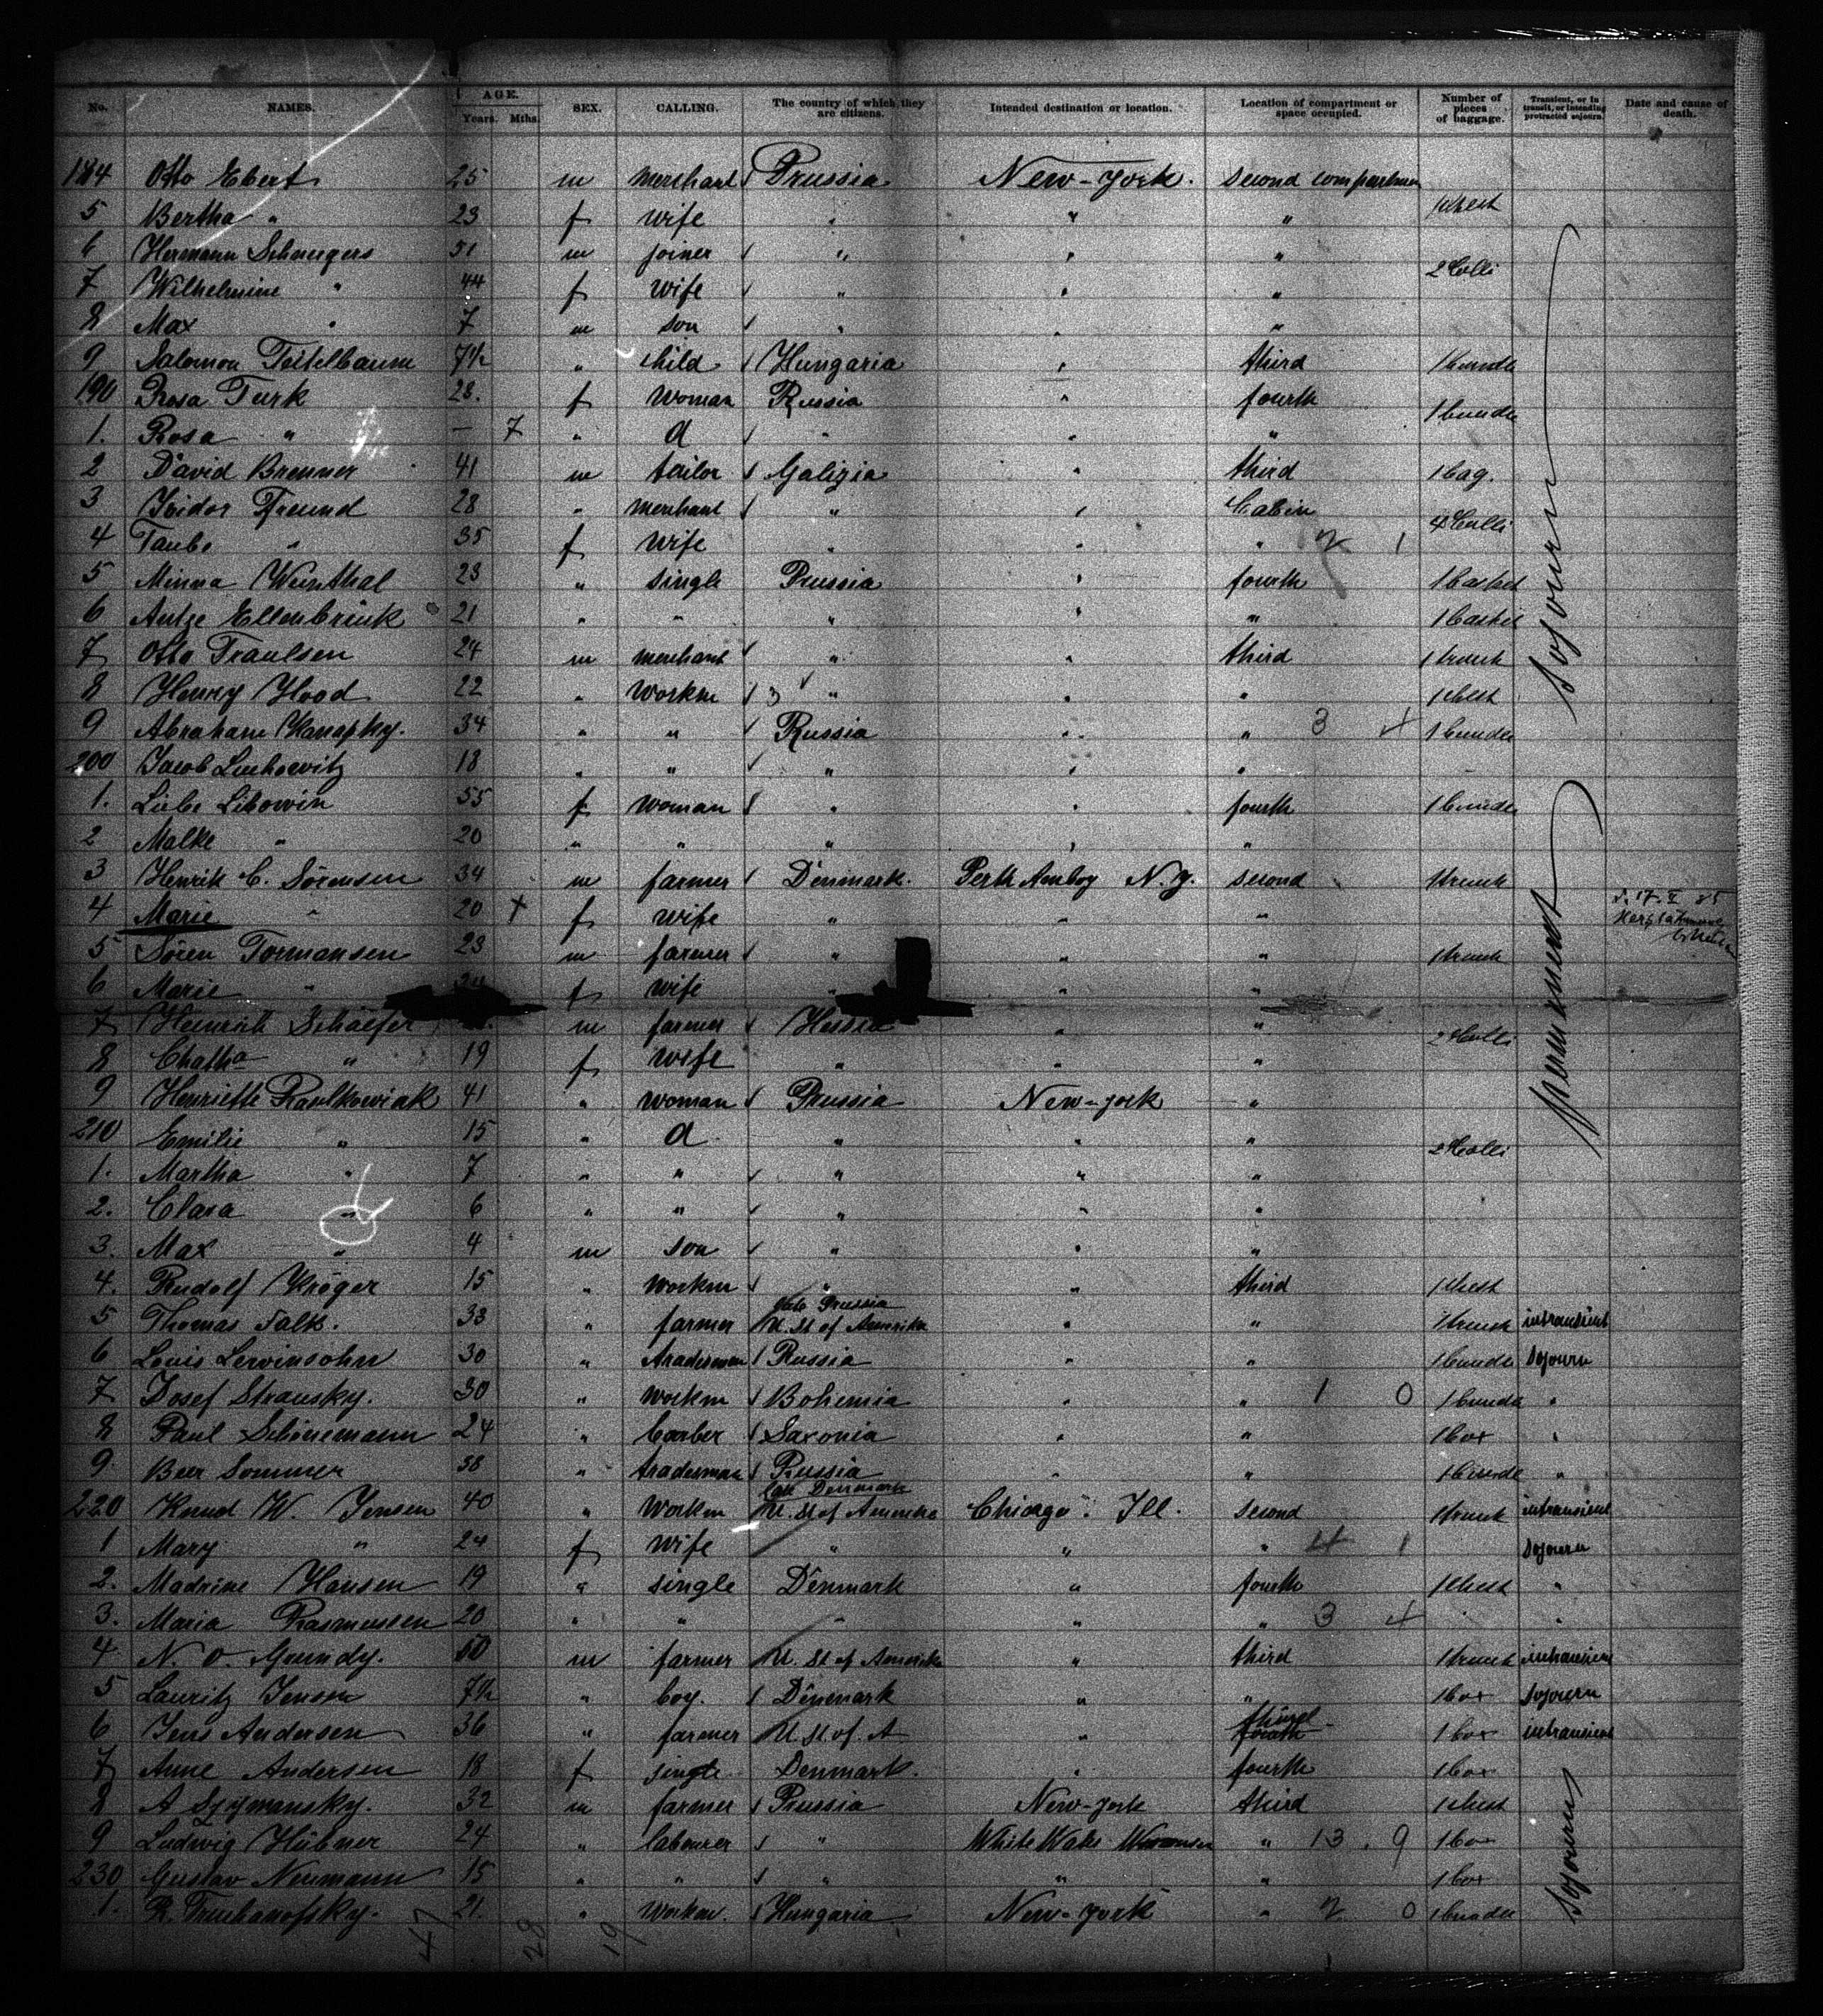 No. NAMES. AGE. Years. Mths. SEX. CALLING. The country of which they are citizens. Intended destination or location. Location of compartment or space occupied. Number of pieces of baggage. Transient, or in transit, or intending protracted sojourn. Date and cause of death.
184 Otto Ebert 25 m merchant Prussia New-York. second compartmen
5 Bertha " 23 f wife " " " 1 chest
6 Hermann 51 m joiner " " "
7 Wilhelmine " 44 f wife " " " 2 Colli
8 Max " 7 m son " " "
9 Salomon Teitelbaum 7½ " child Hungaria " third 1 bundle
190 Rosa Turk 28. f woman Russia " fourth
1. Rosa " — 7 " d " " " 1 bundle
2 David Brenner 41 m tailor Galizia " third 1 bag.
3 Isidor Freund 28 " merchant " " Cabin
4 Taube " 35 f wife " " " 2 1 4 Colli
5 Minna Weinthal 23 " single Prussia " fourth 1 basket
6 Antze Ellenbrink 21 " " " " " 1 basket
7 Otto Traulsen 24 m merchant " " third 1 trunk
8 Henry Hood 22 " workm 3 " " " 1 chest
9 Abraham 34 " " Russia " " 3 4 1 bundle
200 Jacob 18 " " " " "
1. Liebe Libowin 55 f woman " " fourth 1 bundle
2 Malke " 20 " " " " "
3 Henrik C. Sörensen 34 m farmer Denmark. Perth Amboy N.J. second 1 trunk
4 Marie " 20 + f wife " " " 17. V 85
5 Sören Tormansen 23 m farmer " " " 1 trunk
6 Marie " f wife " " "
7 Heinrich Schäefer m farmer Hessia " " 2 Colli
8 " 19 f wife " " "
9 Henriette Raulkowiak 41 " woman Prussia New-York "
210 Emilie " 15 " d " " " 2 Colli
1. Martha " 7 " " " " "
2. Clara " 6 " " " " "
3. Max " 4 m son " " "
4. Rudolf Kröger 15 " workm " " third 1 chest
5 Thomas Falk. 33 " farmer late Prussia U. St of Amerika " " 1 trunk intransient
6 Louis Lewinsohn 30 " tradesman Russia " " 1 bundle Sojourn
7 Josef Stransky. 30 " workm Bohemia " " 1 0 1 bundle "
8 Paul Schönemann 24 " barber Saxonia " " 1 box "
9. Beer Sommer 38 " tradesman Russia " " 1 bundle "
220 Knud W. Jensen 40 " workm late Denmark U. St of Amerika Chicago. Ill. second 1 trunk intransient
1 Mary " 24 f wife " " " 4 1 Sojourn
2. Madrine Hansen 19 " single Denmark " fourth 1 chest "
3. Maria Rasmussen 20 " " " " " 3 4 "
4 N. O. Grundy. 50 m farmer U. St. of Amerika " third 1 trunk intransient
5 Lauritz Jensen 7½ " boy. Denmark " " 1 box Sojourn
6 Jens Andersen 36 " farmer U. St. of. A " third fourth 1 box intransient
7 Anne Andersen 18 f single Denmark. " fourth 1 box
8 A Szymansky. 32 m farmer Prussia New-York third 1 chest
9 Ludwig Hübner 24 " labourer " White Wake " 13. 9 1 box
230 Gustav Neumann 15 " " " " " 1 box
1. R. Truchanofsky. 21. " workm. Hungaria New-York " 2 0 1 bundle
permanent sojourn
sojourn
47 28 19